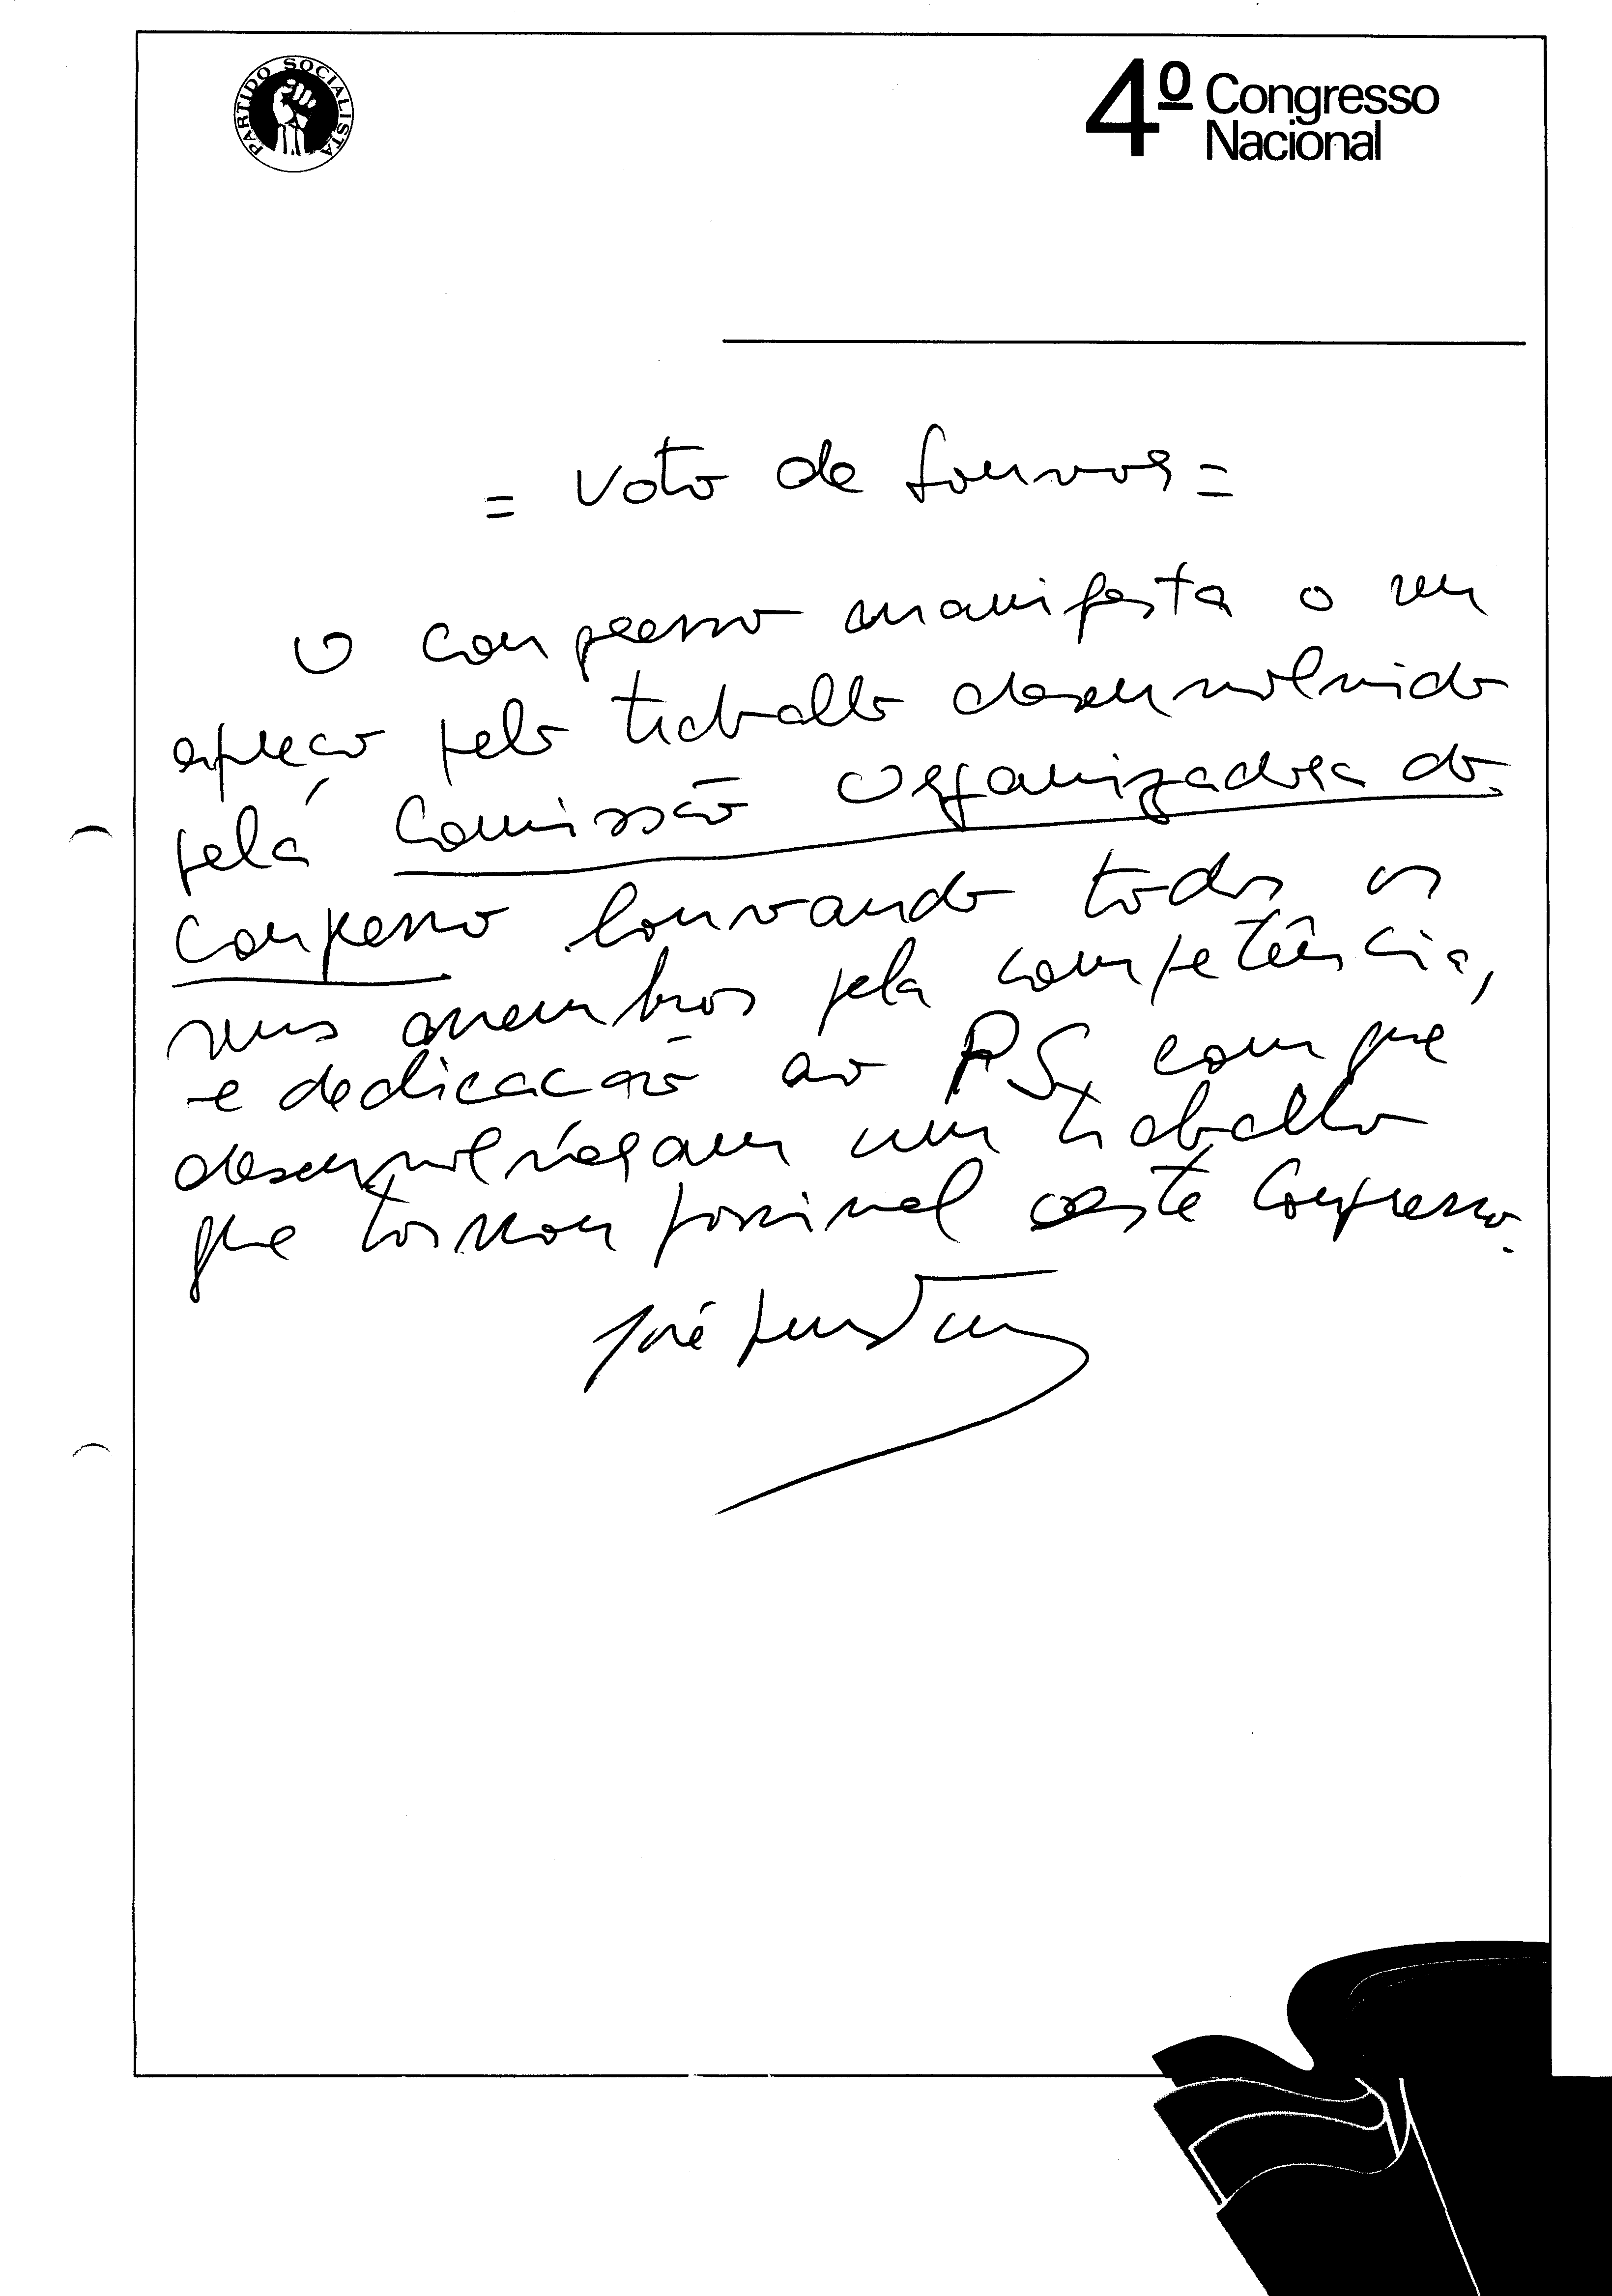 PARTIDO SOCIALISTA
4º Congresso
Nacional
= Voto de Louvor =
O Congresso manifesta o seu
apreço pelo trabalho desenvolvido
pela Comissão Organizadora do
Congresso louvando todos os
seus membros pela competência,
e dedicação ao PS, com que
desenvolveram um trabalho
que tornou possível este Congresso.
José